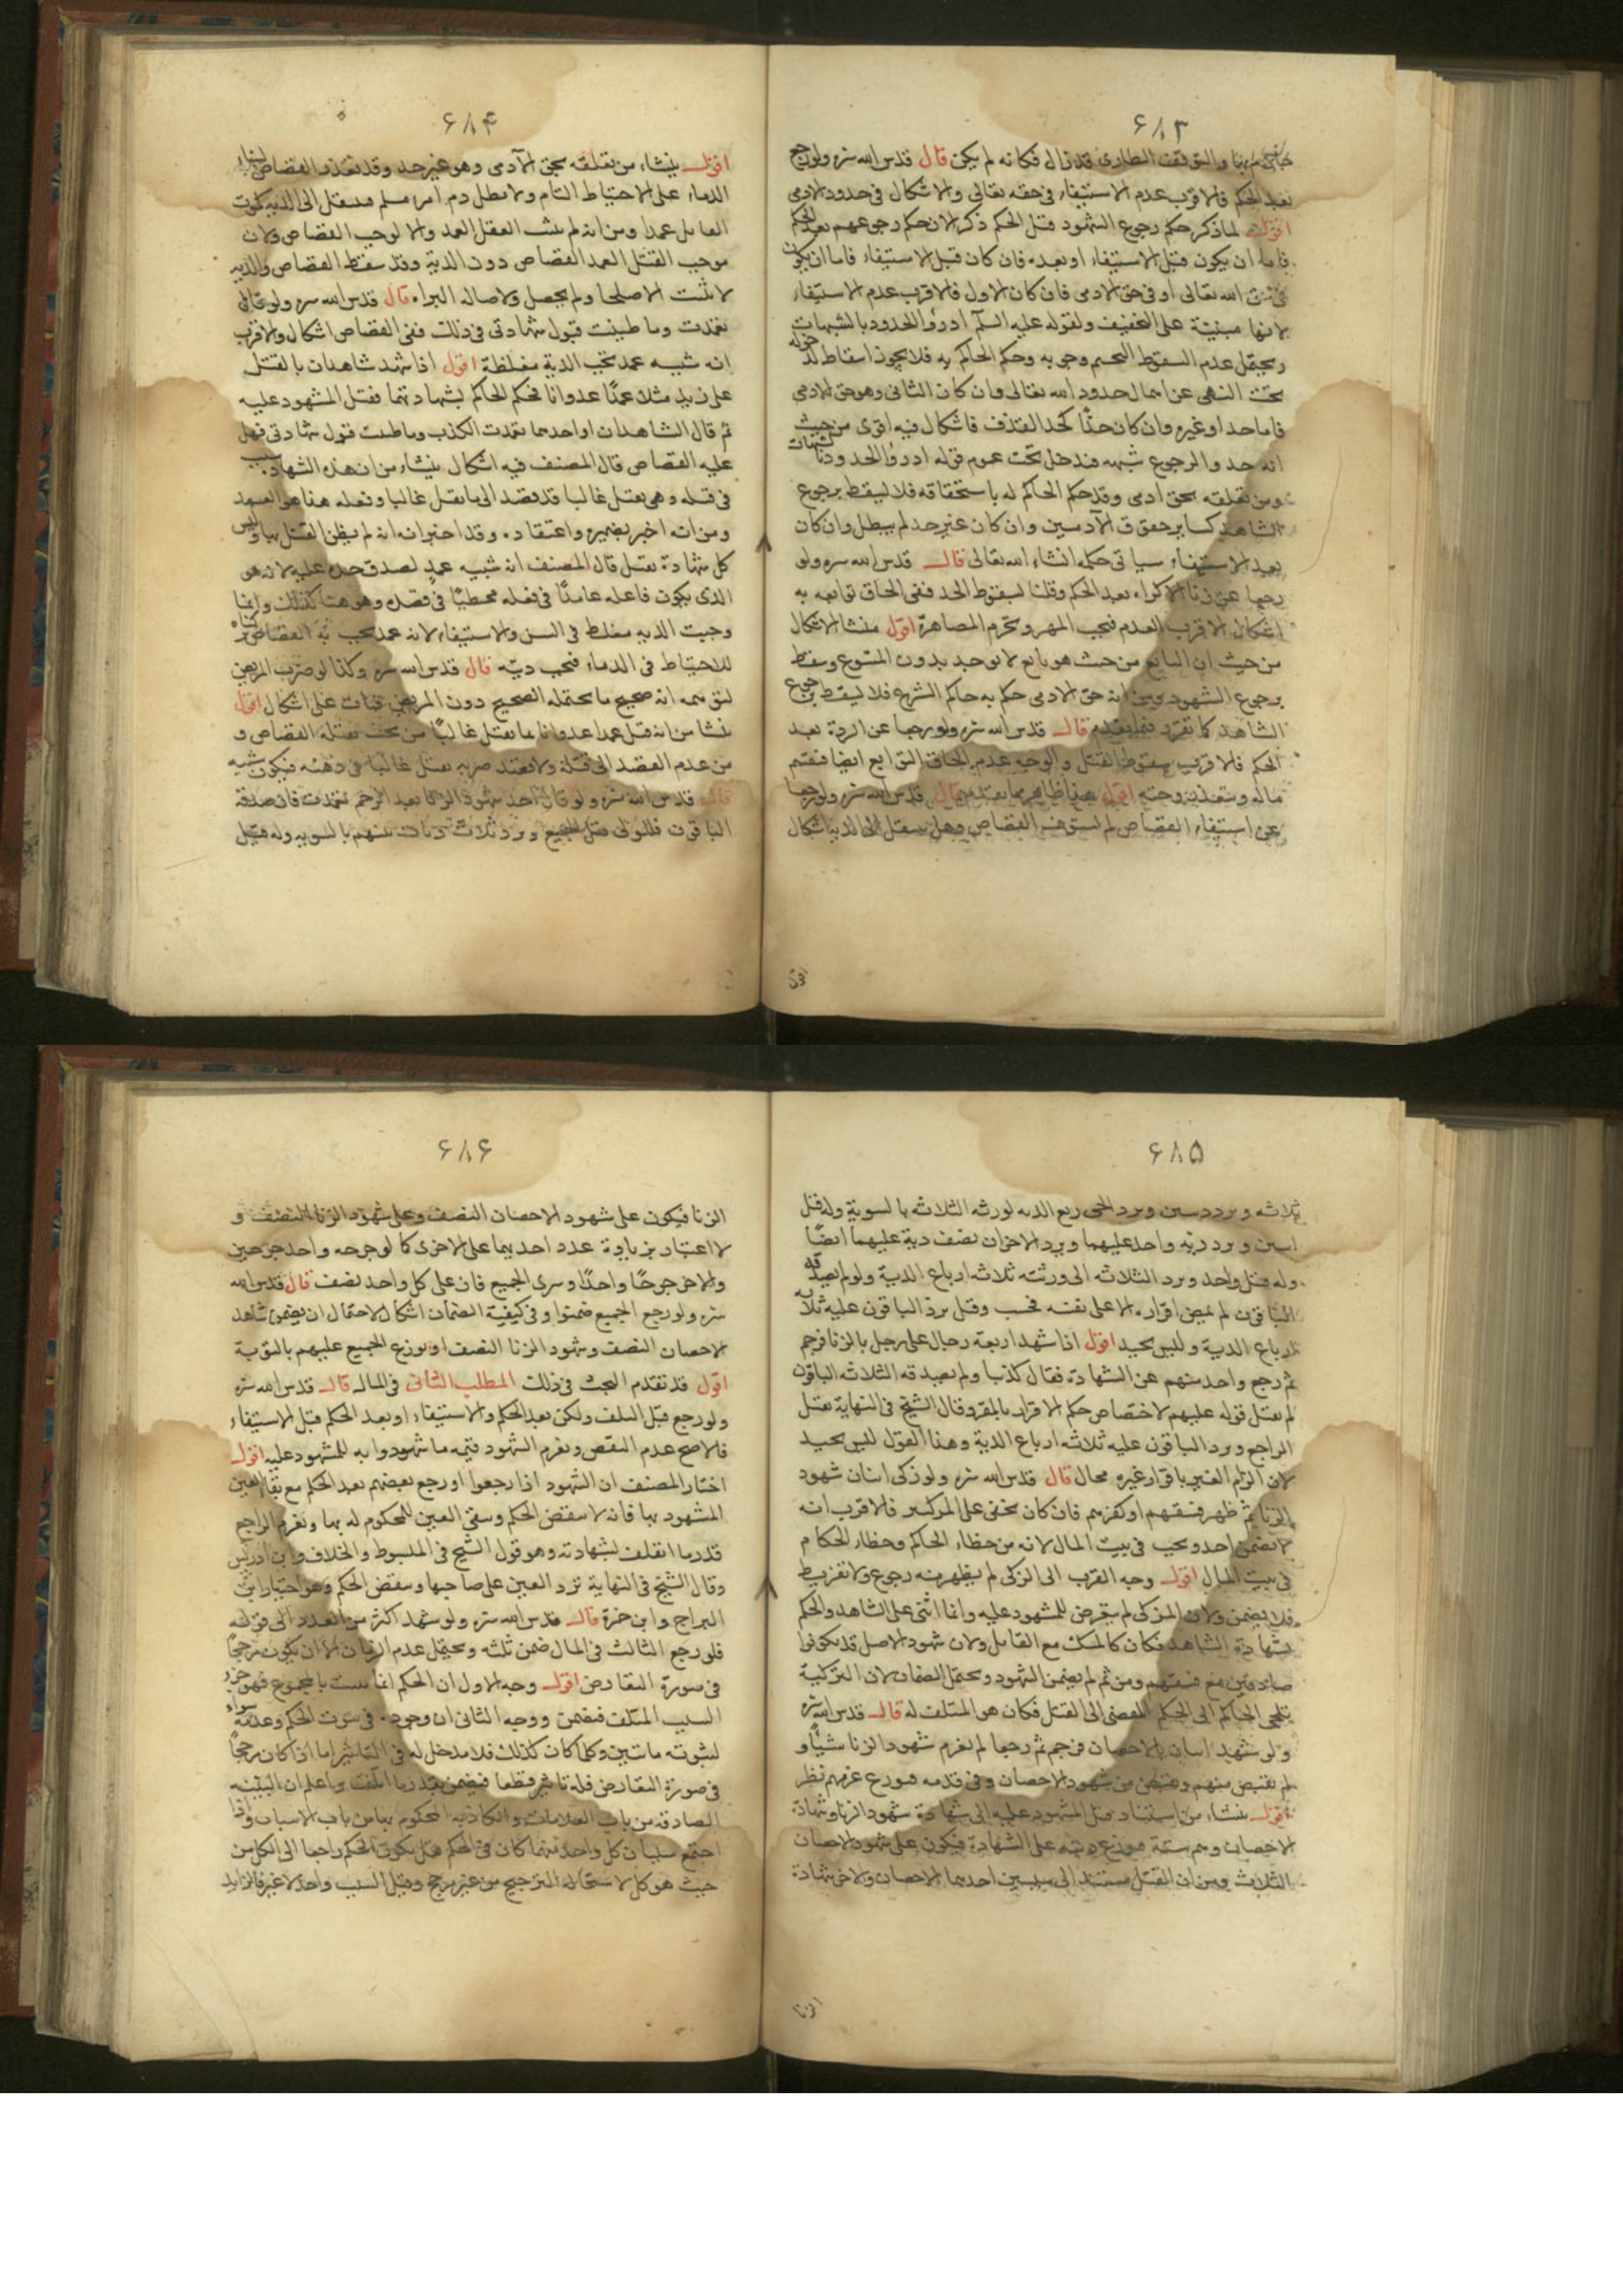 ۶۸۳
والتوقف الطارى قد زال فكانه لم يكن قال قدس الله سره ولو رجع
بعد الحكم فالاقرب عدم الاستيفاء فى حقه تعالى والاشكال فى حدود الادمى
اقول لما ذكر حكم رجوع الشهود قبل الحكم ذكر الان حكم رجوعهم بعد الحكم
فاما ان يكون قبل الاستيفاء او بعده فان كان قبل الاستيفاء فاما ان يكون
فى حق الله تعالى او فى حق الادمى فان كان الاول فالاقرب عدم الاستيفاء
لانها مبنية على التخفيف ولقوله عليه السلم ادرؤا الحدود بالشبهات
ويحتمل عدم السقوط لتحتم وجوبه وحكم الحاكم به فلا يجوز اسقاطه لدخوله
تحت النهى عن اهمال حدود الله تعالى وان كان الثانى وهو حق الادمى
فاما حد او غيره وان كان حدًا كحد القذف فاشكال فيه اقوى من حيث
انه حد والرجوع شبهه فيدخل تحت عموم قوله ادرؤا الحدود بالشبهات
ومن تعلقه بحق ادمى وقد حكم الحاكم له باستحقاقه فلا يسقط برجوع
الشاهد كساير حقوق الآدميين وان كان غير حد لم يبطل وان كان
بعد الاستيفاء سياتى حكمه انشاء الله تعالى قال قدس الله سره ولو
رجعا عن زنا الاكراه بعد الحكم وقلنا بسقوط الحد ففى الحاق توابعه به
اشكال الاقرب العدم فيجب المهر وتحرم المصاهرة اقول منشا الاشكال
من حيث ان التابع من حيث هو تابع لا يوجد بدون المتبوع وسقط
برجوع الشهود ومن انه حق الادمى حكم به حاكم الشرع فلا يسقط برجوع
الشاهد كما تقرر فيما تقدم قال قدس الله سره ولو رجعا عن الردة بعد
الحكم فلاقرب سقوط القتل والوجه عدم الحاق التوابع ايضا فيقسم
ماله وتعتد زوجته اقول هذا ظاهر مما تقدم قال قدس الله سره ولو رجعا
عن استيفاء القصاص لم يستوف القصاص وهل ينتقل الى الدية اشكال
۶۸۴
اقول ينشاء من تعلقه بحق الآدمى وهو غير حد وقد تعذر القصاص لبناء
الدماء على الاحتياط التام ولا يطل دم امرء مسلم فينتقل الى الدية كموت
القاتل عمدا ومن انه لم يثبت القتل العمد والا لوجب القصاص ولان
موجب القتل العمد القصاص دون الدية وقد سقط القصاص والدية
لا تثبت الا صلحا ولم يحصل ولاصالة البراءه قال قدس الله سره ولو قالا
تعمدت وما ظننت قبول شهادتى فى ذلك ففى القصاص اشكال والاقرب
انه شبيه عمد تجب الدية مغلظة اقول اذا شهد شاهدان بالقتل
على زيد مثلا عمدًا عدوانا فحكم الحاكم بشهادتهما فقتل المشهود عليه
ثم قال الشاهدان او احدهما تعمدت الكذب وما ظننت قبول شهادتى فهل
عليه القصاص قال المصنف فيه اشكال ينشاء من ان هذه الشهادة سبب
فى قتله وهى يقتل غالبا فقد قصد الى ما يقتل غالبا وفعله هذا هو العمد
ومن انه اخبر بضميره واعتقاده وقد اخبر انه لم يظن القتل بها وليس
كل شهادة تقتل قال المصنف انه شبيه عمدٍ لصدق حده عليه لانه هو
الذى يكون فاعله عامدًا فى فعله مخطئًا فى قصده وهو هنا كذلك وانما
وجبت الدية مغلظة فى السن والاستيفاء لانه عمد يجب به القصاص لولا
للاحتياط فى الدماء فتجب دية قال قدس الله سره وكذا لو ضرب المريض
لتوهمه انه صحيح ما يحتمله الصحيح دون المريض فمات على اشكال اقول
ينشا من انه قتل عمدا عدوانا بما يقتل غالبًا من تحت يقتله القصاص و
من عدم القصد الى قتله ولا يعتقد ضربه يقتل غالبا فى ذهنه فيكون شبيه
قال قدس الله سره ولو قال احد شهود الزنا بعد الرجم تعمدت فان صدقه
الباقون فللولى قتل الجميع ويرد ثلاث ديات بينهم بالسويه وله قتل
۶۸۵
ثلاثه ويرد ديتين ويرد الحى ربع الدية لورثه الثلاثه بالسوية وله قتل
اثنين ويرد دية واحد عليهما ويرد الاخران نصف دية عليهما ايضًا
وله قتل واحد ويرد الثلاثه الى ورثته ثلاثه ارباع الدية ولو لم يصدقه
الباقون لم يمض اقراره الا على نفسه فحسب وقتل يرد الباقون عليه ثلاثه
ارباع الدية وليس بجيد اقول اذا شهد اربعة رجال على رجل بالزنا فرجم
ثم رجع واحد منهم عن الشهادة فقال كذبنا ولم يصدقه الثلاثه الباقون
لم يقبل قوله عليهم لاختصاص حكم الاقرار بالمقر وقال الشيخ فى النهاية يقتل
الراجع ويرد الباقون عليه ثلاثه ارباع الدية وهذا القول ليس بجيد
لان الزام الغير باقرار غيره محال قال قدس الله سره ولو زكى اثنان شهود
الزنا ثم ظهر فسقهم او كفرهم فان كان يخفى على المزكين فالاقرب انه
لا يضمن احد ويجب فى بيت المال لانه من خطاء الحاكم وخطاء الحكام
فى بيت المال اقول وجه القرب الى المزكى لم يظهر منه رجوع ولا تفريط
فلا يضمن ولان المزكى لم يتعرض للمشهود عليه وانما اثنى على الشاهد والحكم
بشهادة الشاهد فكان كالممسك مع القاتل ولان شهود الاصل قد يكونوا
صادقين مع فسقهم ومن ثم لم يضمن الشهود ويحتمل الضمان لان التزكية
يلجى الحاكم الى الحكم المفضى الى القتل فكان هو المتلف له قال قدس الله سره
ولو شهد اثنان بالاحصان فرجم ثم رجعا لم يغرم شهود الزنا شيئًا و
لم يقتص منهم ويقتص من شهود الاحصان وفى قدر ما يورع غرمهم نظر
اقول ينشاء من استناد قتل المشهود عليه الى شهادة شهود الزنا وشهادة
الاحصان وهم ستة فيوزع ديته على الشهادة فيكون على شهود الاحصان
الثلاث ومن ان القتل مستند الى سببين احدهما الاحصان والاخر شهادة
الزنا
۶۸۶
الزنا فيكون على شهود الاحصان النصف وعلى شهود الزنا النصف و
لا اعتبار بزيادة عدد احديهما على الاخرى كما لو جرحه واحد جرحين
والاخر جرحًا واحدًا وسرى الجميع فان على كل واحد نصف قال قدس الله
سره ولو رجع الجميع ضمنوا وفى كيفية الضمان اشكال لاحتمال ان يضمن شاهد
الاحصان النصف وشهود الزنا النصف او يوزع الجميع عليهم بالسوية
اقول قد تقدم البحث فى ذلك المطلب الثانى فى المال قال قدس الله سره
ولو رجع قبل التلف ولكن بعد الحكم والاستيفاء او بعد الحكم قبل الاستيفاء
فالاصح عدم النقض ويغرم الشهود قيمه ما شهدوا به للمشهود عليه اقول
اختار المصنف ان الشهود اذا رجعوا او رجع بعضهم بعد الحكم مع بقاء العين
المشهود بها فانه لا ينقض الحكم وتبقى العين للمحكوم له بها ويغرم الراجع
قدر ما اتلف بشهادته وهو قول الشيخ فى المبسوط والخلاف وابن ادريس
وقال الشيخ فى النهاية ترد العين على صاحبها وينقض الحكم وهو اختيار ابن
البراج وابن حمزة قال قدس الله سره ولو شهد اكثر من العدد الى قوله
فلو رجع الثالث فى المال ضمن ثلثه ويحتمل عدم الرجحان الا ان يكون مرجحًا
فى صورة التعارض اقول وجه الاول ان الحكم انما يثبت بالمجموع فهو جزء
السبب المتلف فيضمن ووجه الثانى ان وجوده فى ثبوت الحكم وعدمه سواء
لثبوته ماتين وكلما كان كذلك فلا مدخل له فى التاثير اما اذا كان مرجحًا
فى صورة التعارض فله تاثير قطعا فيضمن بقدر ما اتلف واعلم ان البينة
الصادقه من باب العلامات والكاذبه المحكوم بها من باب الاسباب واذا
اجتمع سببان كل واحد منهما كان فى الحكم فهل يكون الحكم راجعا الى الكل من
حيث هو كل لاستحالة الترجيح من غير مرجح وقيل السبب واحد لا غير فالزايد